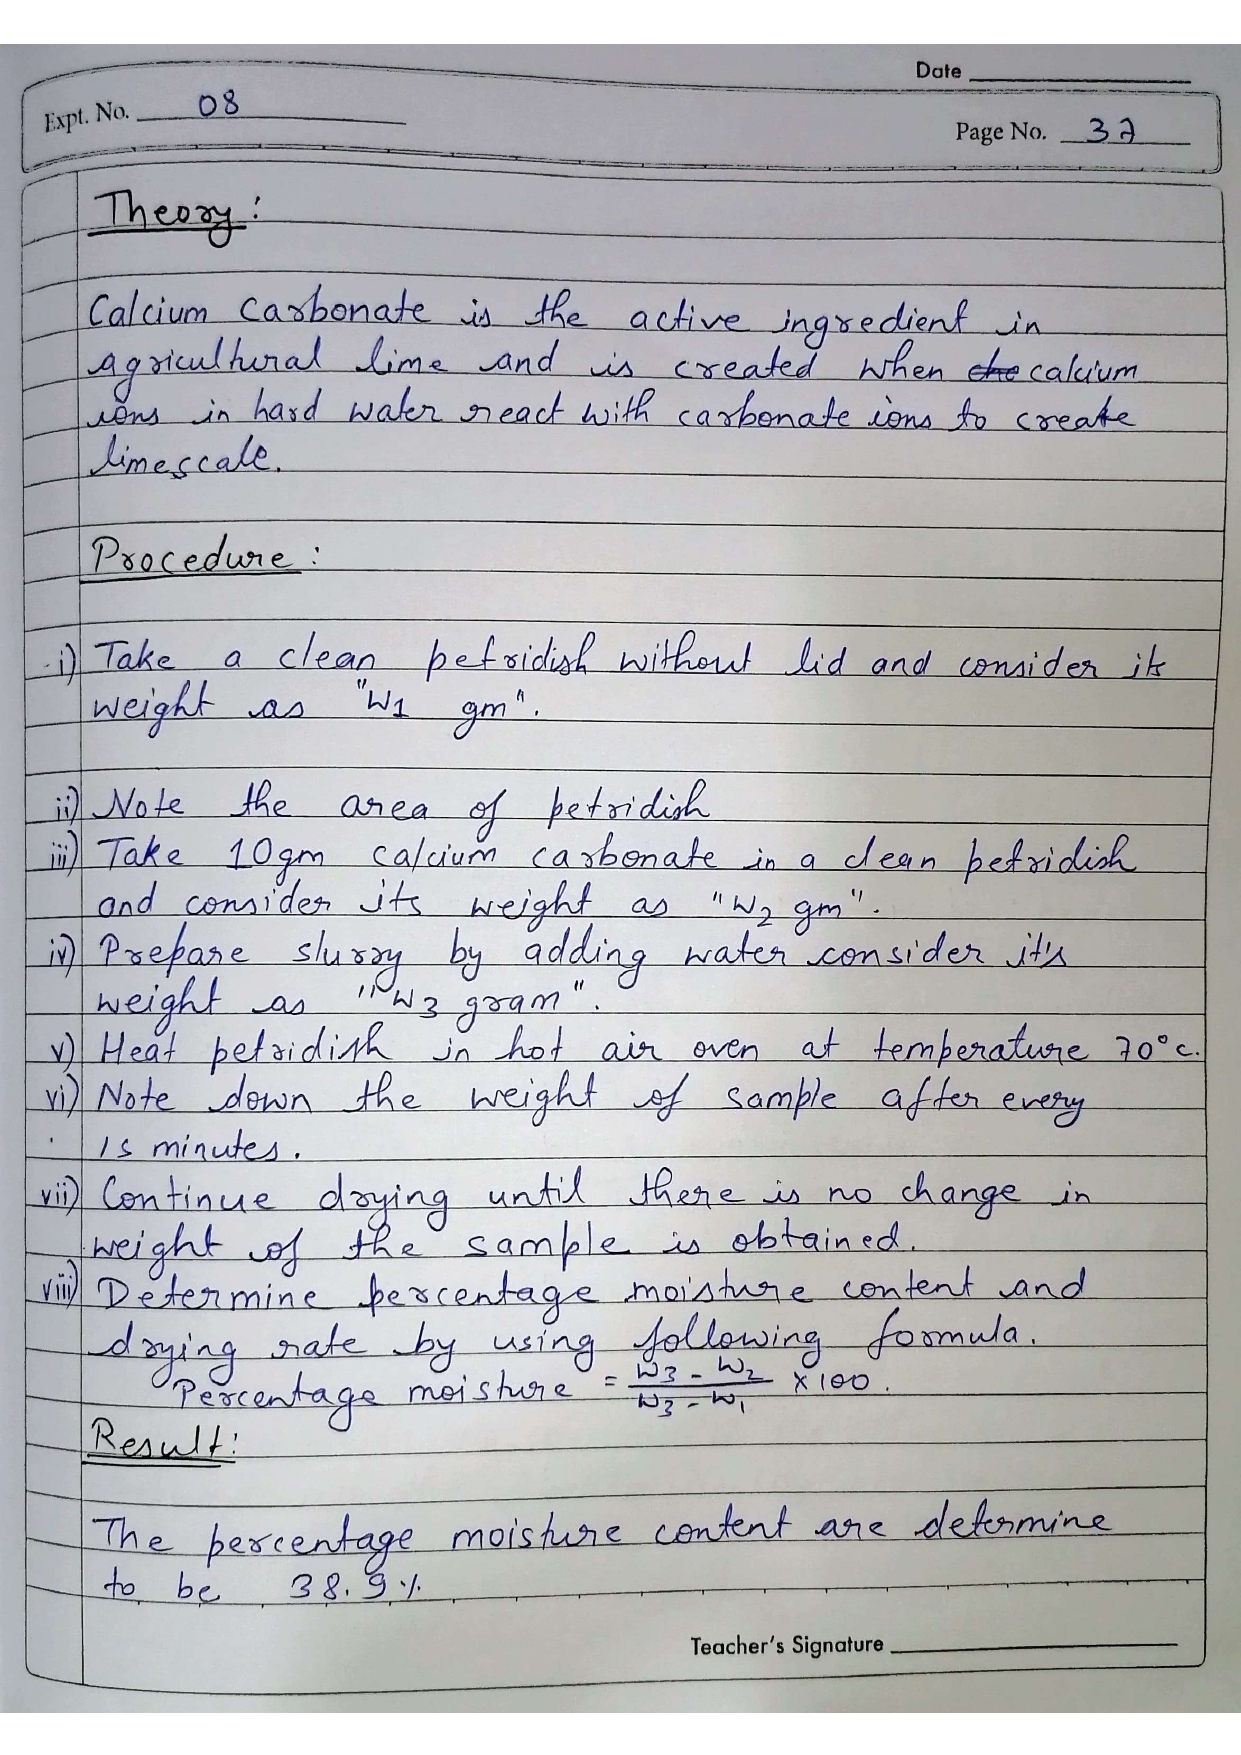 Date
Expt. No. 08
Page No. 37
Theory:
Calcium Carbonate is the active ingredient in
agricultural lime and is created when the calcium
ions in hard water react with carbonate ions to create
limescale.
Procedure:
i) Take a clean petridish without lid and consider its
weight as "W1 gm".
ii) Note the area of petridish
iii) Take 10gm calcium carbonate in a clean petridish
and consider its weight as "W2 gm".
iv) Prepare slurry by adding water consider it's
weight as "W3 gram".
v) Heat petridish in hot air oven at temperature 70°c.
vi) Note down the weight of sample after every
15 minutes.
vii) Continue drying until there is no change in
weight of the sample is obtained.
viii) Determine percentage moisture content and
drying rate by using following formula.
Percentage moisture = W3 - W2 / W3 - W1 × 100.
Result:
The percentage moisture content are determine
to be 38.9%
Teacher's Signature